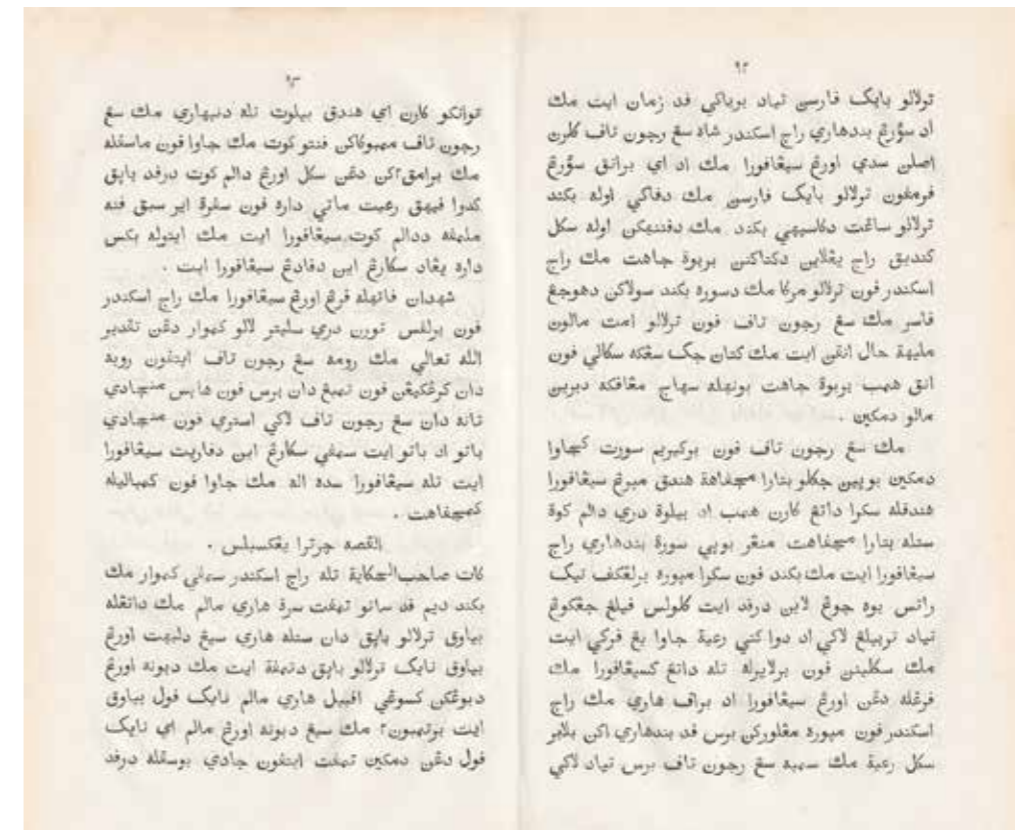 ٩٢
ترلالو بايك فارسڽ تياد برباݢي ڤد زمان ايت مك
اد سؤرڠ بندهاري راج اسكندر شاه سڠ رجون تاڤ ݢلرن
اصلن سدي اورڠ سيڠافورا مك اد اي برانق سؤرڠ
فرمفون ترلالو بايك فارسڽ مك دفاكي اوله بكند
ترلالو ساڠت دكاسيهي بكند مك دفتنهكن اوله سكل
كنديق راج يڠلاين دكتاكنن بربوة جاهت مك راج
اسكندر فون ترلالو مركا مك دسوره بكند سولاكن دهوجڠ
فاسر مك سڠ رجون تاف فون ترلالو امت مالون
مليهة حال انقن ايت مك كتان جك سڠكه سكالي فون
انق همب بربوة جاهت بونهله سهاج مڠافكه دبرين
مالو دمكين ٠
مك سڠ رجون تاف فون بركيريم سورت كجاوا
دمكين بوڽين جكلو بتارا مجفاهة هندق ميرڠ سيڠافورا
هندقله سكرا داتڠ كارن همب اد بيلوة دري دالم كوة
ستله بتارا مجفاهت منڠر بوڽي سورة بندهاري راج
سيڠافورا ايت مك بكند فون سكرا ميورة برلڠكف تيݢ
راتس بوه جوڠ لاين درفد ايت كلولس فيلڠ جڠكوڠ
تياد تربيلڠ لاكي اد دوا كتي رعية جاوا يڠ فركي ايت
مك سكلينن فون برلايرله تله داتڠ كسيڠافورا مك
فرڠله دڠن اورڠ سيڠافورا اد براف هاري مك راج
اسكندر فون ميوره مڠلوركن برس فد بندهاري اكن بلنجر
سكل رعية مك سمبه سڠ رجون تاف برس تياد لاكي
٩٣
توانكو كارن اي هندق بيلوت تله دنيهاري مك سڠ
رجون تاف ممبوكاكن فنتو كوت مك جاوا فون ماسقله
مك برامق٢كن دڠن سكل اورڠ دالم كوت درفد باڽق
كدوا فيهق رعيت ماتي داره فون سفرة اير سبق فنه
مليمفه ددالم كوت سيڠافورا ايت مك ايتوله بكس
داره يڠاد سكارڠ اين دفادڠ سيڠافورا ايت ٠
شهدان فاتهله فرڠ اورڠ سيڠافورا مك راج اسكندر
فون برلفس تورن دري سليتر لالو كموار دڠن تقدير
الله تعالي مك رومه سڠ رجون تاف ايتفون روبه
دان كرڠكيڠن فون تمبڠ دان برس فون هابس منجادي
تانه دان سڠ رجون تاف لاكي استري فون منجادي
باتو اد باتو ايت سمفي سكارڠ اين دفاريت سيڠافورا
ايت تله سيڠافورا سده اله مك جاوا فون كمباليله
كمجفاهت ٠
القصه چرترا يڠكسبلس ٠
كات صاحب الحكاية تله راج اسكندر سمفي كموار مك
بكند ديم فد ساتو تمفت سرة هاري مالم مك داتڠله
بياوق ترلالو باڽق دان ستله هاري سيڠ دليهت اورڠ
بياوق نايك ترلالو باڽق دتمفة ايت مك دبونه اورڠ
دبوڠكن كسوڠي افبيل هاري مالم نايك فول بياوق
ايت برتمبون٢ مك سيڠ دبونه اورڠ مالم اي نايك
فول دڠن دمكين تمفت ايتفون جادي بوسقله درفد